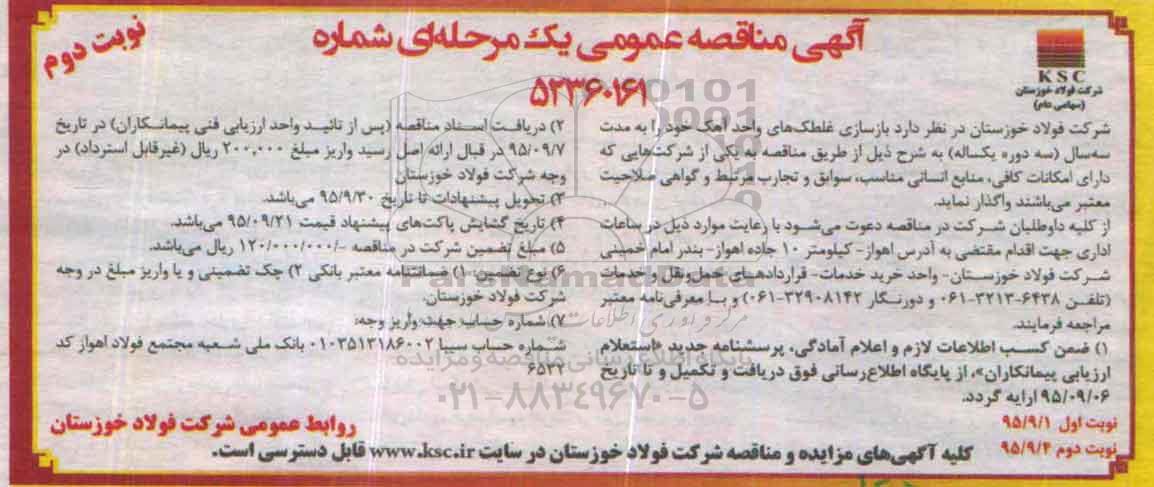 نوبت دوم
آگهی مناقصه عمومی یک مرحله‌ای شماره
۵۲۳۶۰۱۶۱
KSC
شرکت فولاد خوزستان
(سهامی عام)
شرکت فولاد خوزستان در نظر دارد بازسازی غلطک‌های واحد آهک خود را به مدت
سه‌سال (سه دوره یکساله) به شرح ذیل از طریق مناقصه به یکی از شرکت‌هایی که
دارای امکانات کافی، منابع انسانی مناسب، سوابق و تجارب مرتبط و گواهی صلاحیت
معتبر می‌باشند واگذار نماید.
از کلیه داوطلبان شرکت در مناقصه دعوت می‌شود با رعایت موارد ذیل در ساعات
اداری جهت اقدام مقتضی به آدرس اهواز- کیلومتر ۱۰ جاده اهواز- بندر امام خمینی
شرکت فولاد خوزستان- واحد خرید خدمات- قراردادهای حمل و نقل و خدمات
(تلفن ۶۴۳۸-۳۲۱۳-۰۶۱ و دورنگار ۳۲۹۰۸۱۴۲-۰۶۱) و با معرفی‌نامه معتبر
مراجعه فرمایند.
۱) ضمن کسب اطلاعات لازم و اعلام آمادگی، پرسشنامه جدید «استعلام
ارزیابی پیمانکاران»، از پایگاه اطلاع‌رسانی فوق دریافت و تکمیل و تا تاریخ
۹۵/۰۹/۰۶ ارایه گردد.
۲) دریافت اسناد مناقصه (پس از تائید واحد ارزیابی فنی پیمانکاران) در تاریخ
۹۵/۰۹/۷ در قبال ارائه اصل رسید واریز مبلغ ۲۰۰,۰۰۰ ریال (غیرقابل استرداد) در
وجه شرکت فولاد خوزستان
۳) تحویل پیشنهادات تا تاریخ ۹۵/۹/۳۰ می‌باشد.
۴) تاریخ گشایش پاکت‌های پیشنهاد قیمت ۹۵/۰۹/۲۱ می‌باشد.
۵) مبلغ تضمین شرکت در مناقصه -/۱۲۰/۰۰۰/۰۰۰ ریال می‌باشد.
۶) نوع تضمین: ۱) ضمانتنامه معتبر بانکی ۲) چک تضمینی و یا واریز مبلغ در وجه
شرکت فولاد خوزستان.
۷) شماره حساب جهت واریز وجه:
شماره حساب سیبا ۰۱۰۳۵۱۳۱۸۶۰۰۲ بانک ملی شعبه مجتمع فولاد اهواز کد
۶۵۲۲
نوبت اول ۹۵/۹/۱
نوبت دوم ۹۵/۹/۲
روابط عمومی شرکت فولاد خوزستان
کلیه آگهی‌های مزایده و مناقصه شرکت فولاد خوزستان در سایت www.ksc.ir قابل دسترسی است.
ParsNamadData
مرکز فرآوری اطلاعات
پایگاه اطلاع رسانی مناقصه و مزایده
۰۲۱-۸۸۳۴۹۶۷۰-۵